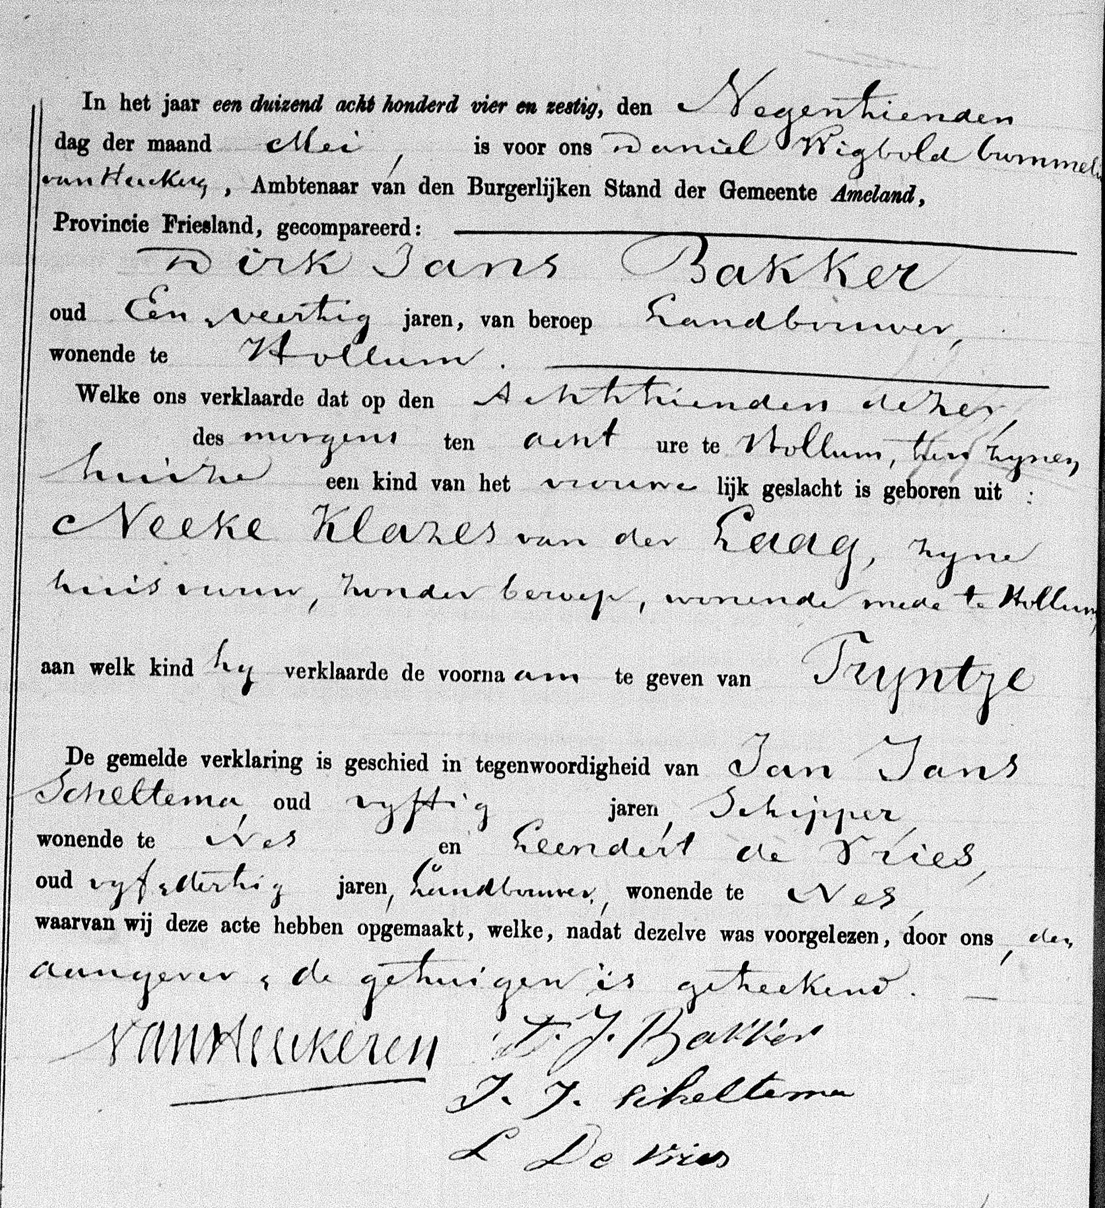 In het jaar een duizend acht honderd vier en zestig, den Negentienden
dag der maand Mei, is voor ons Daniël Wigbold
van Heeckeren, Ambtenaar van den Burgerlijken Stand der Gemeente Ameland,
Provincie Friesland, gecompareerd:
Dirk Jans Bakker
oud Een & veertig jaren, van beroep Landbouwer,
wonende te Hollum.
Welke ons verklaarde dat op den Achttienden dezer,
des morgens ten acht ure te Hollum, ten zynen
huize een kind van het vrouwelijk geslacht is geboren uit :
Neeke Klazes van der Laag, zyne
huisvrouw, zonder beroep, wonende mede te Hollum,
aan welk kind hy verklaarde de voornaam te geven van Tryntje
De gemelde verklaring is geschied in tegenwoordigheid van Jan Jans
Scheltema, oud vyftig jaren, Schipper,
wonende te Nes en Leendert de Vries,
oud vyf & dertig jaren, Landbouwer, wonende te Nes,
waarvan wij deze acte hebben opgemaakt, welke, nadat dezelve was voorgelezen, door ons, den
aangever & de getuigen is geteekend.
Van Heeckeren D. J. Bakker
J. J. Scheltema
L De Vries